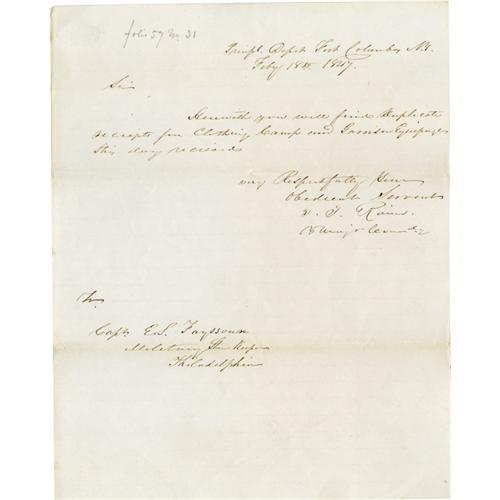 folio 57 No 31
Principl Depot Fort Columbus N.Y.
Feby 18th 1847.
Sir
Herewith you will find Duplicate
receipts for Clothing Camp and Garrison Equipage
this day received
Very Respectfully Your
Obedient Servant
G. J. Rains
B Major Comdg
To
Capt. E.S. Fayssoux
Military Store Keeper
Philadelphia